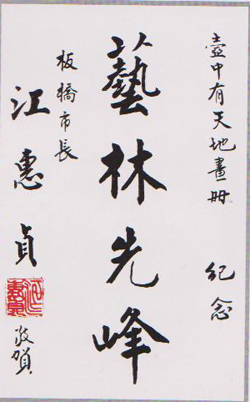 壺中有天地畫冊 紀念
藝林先峰
板橋市長
江惠貞 敬賀